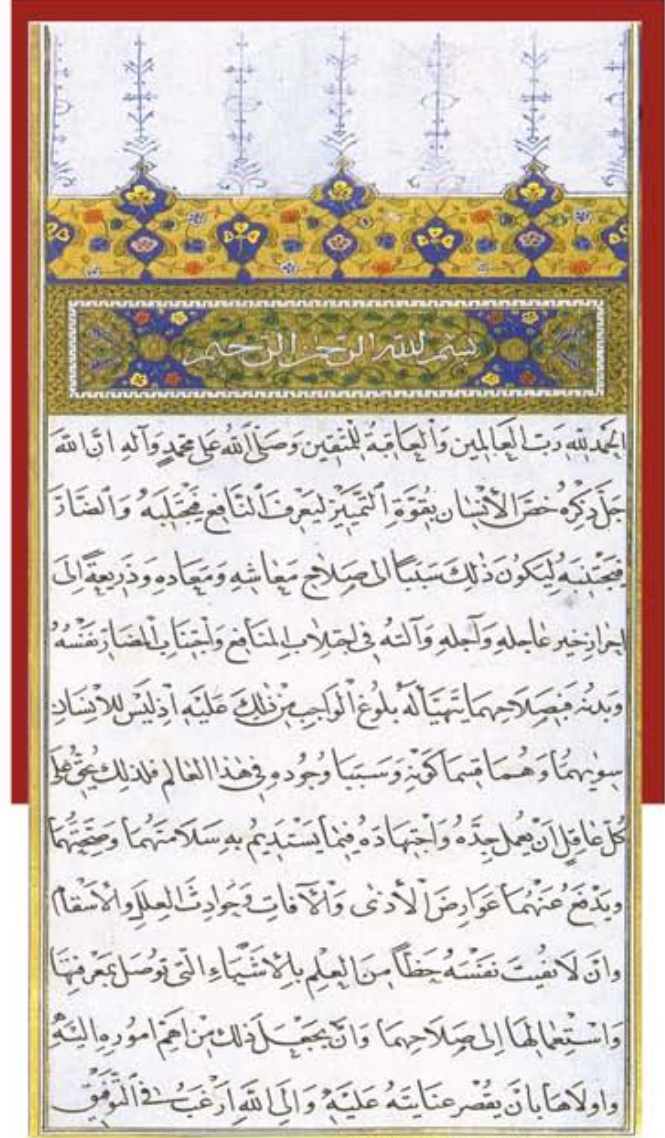 بسم الله الرحمن الرحيم
الحمد لله رب العالمين والعاقبة للمتقين وصلى الله على محمد وآله ان الله
جل ذكره خص الانسان بقوة التمييز ليعرف النافع فيجتلبه والضار
فيجتنبه ليكون ذلك سببا الى صلاح معاشه ومعاده وذريعة الى
احراز خير عاجله وآجله وآلته في اجتلاب المنافع واجتناب المضار نفسه
وبدنه فبصلاحهما يتهيأ له بلوغ الواجب من ذلك عليه اذ ليس للانسان
سواهما وهما قسما كونه وسببا وجوده في هذا العالم فلذلك يحق على
كل عاقل ان يعمل جده واجتهاده فيما يستديم به سلامتهما وصحتهما
ويدفع عنهما عوارض الأذى والآفات وحوادث العلل والاسقام
وان لا تفيت نفسه حظا من العلم بالاشياء التي توصل بمعرفتها
واستعمالها الى صلاحهما وان يجعل ذلك من اهم اموره اليه
واولاها بان يقصر عنايته عليه والى الله ارغب في التوفيق